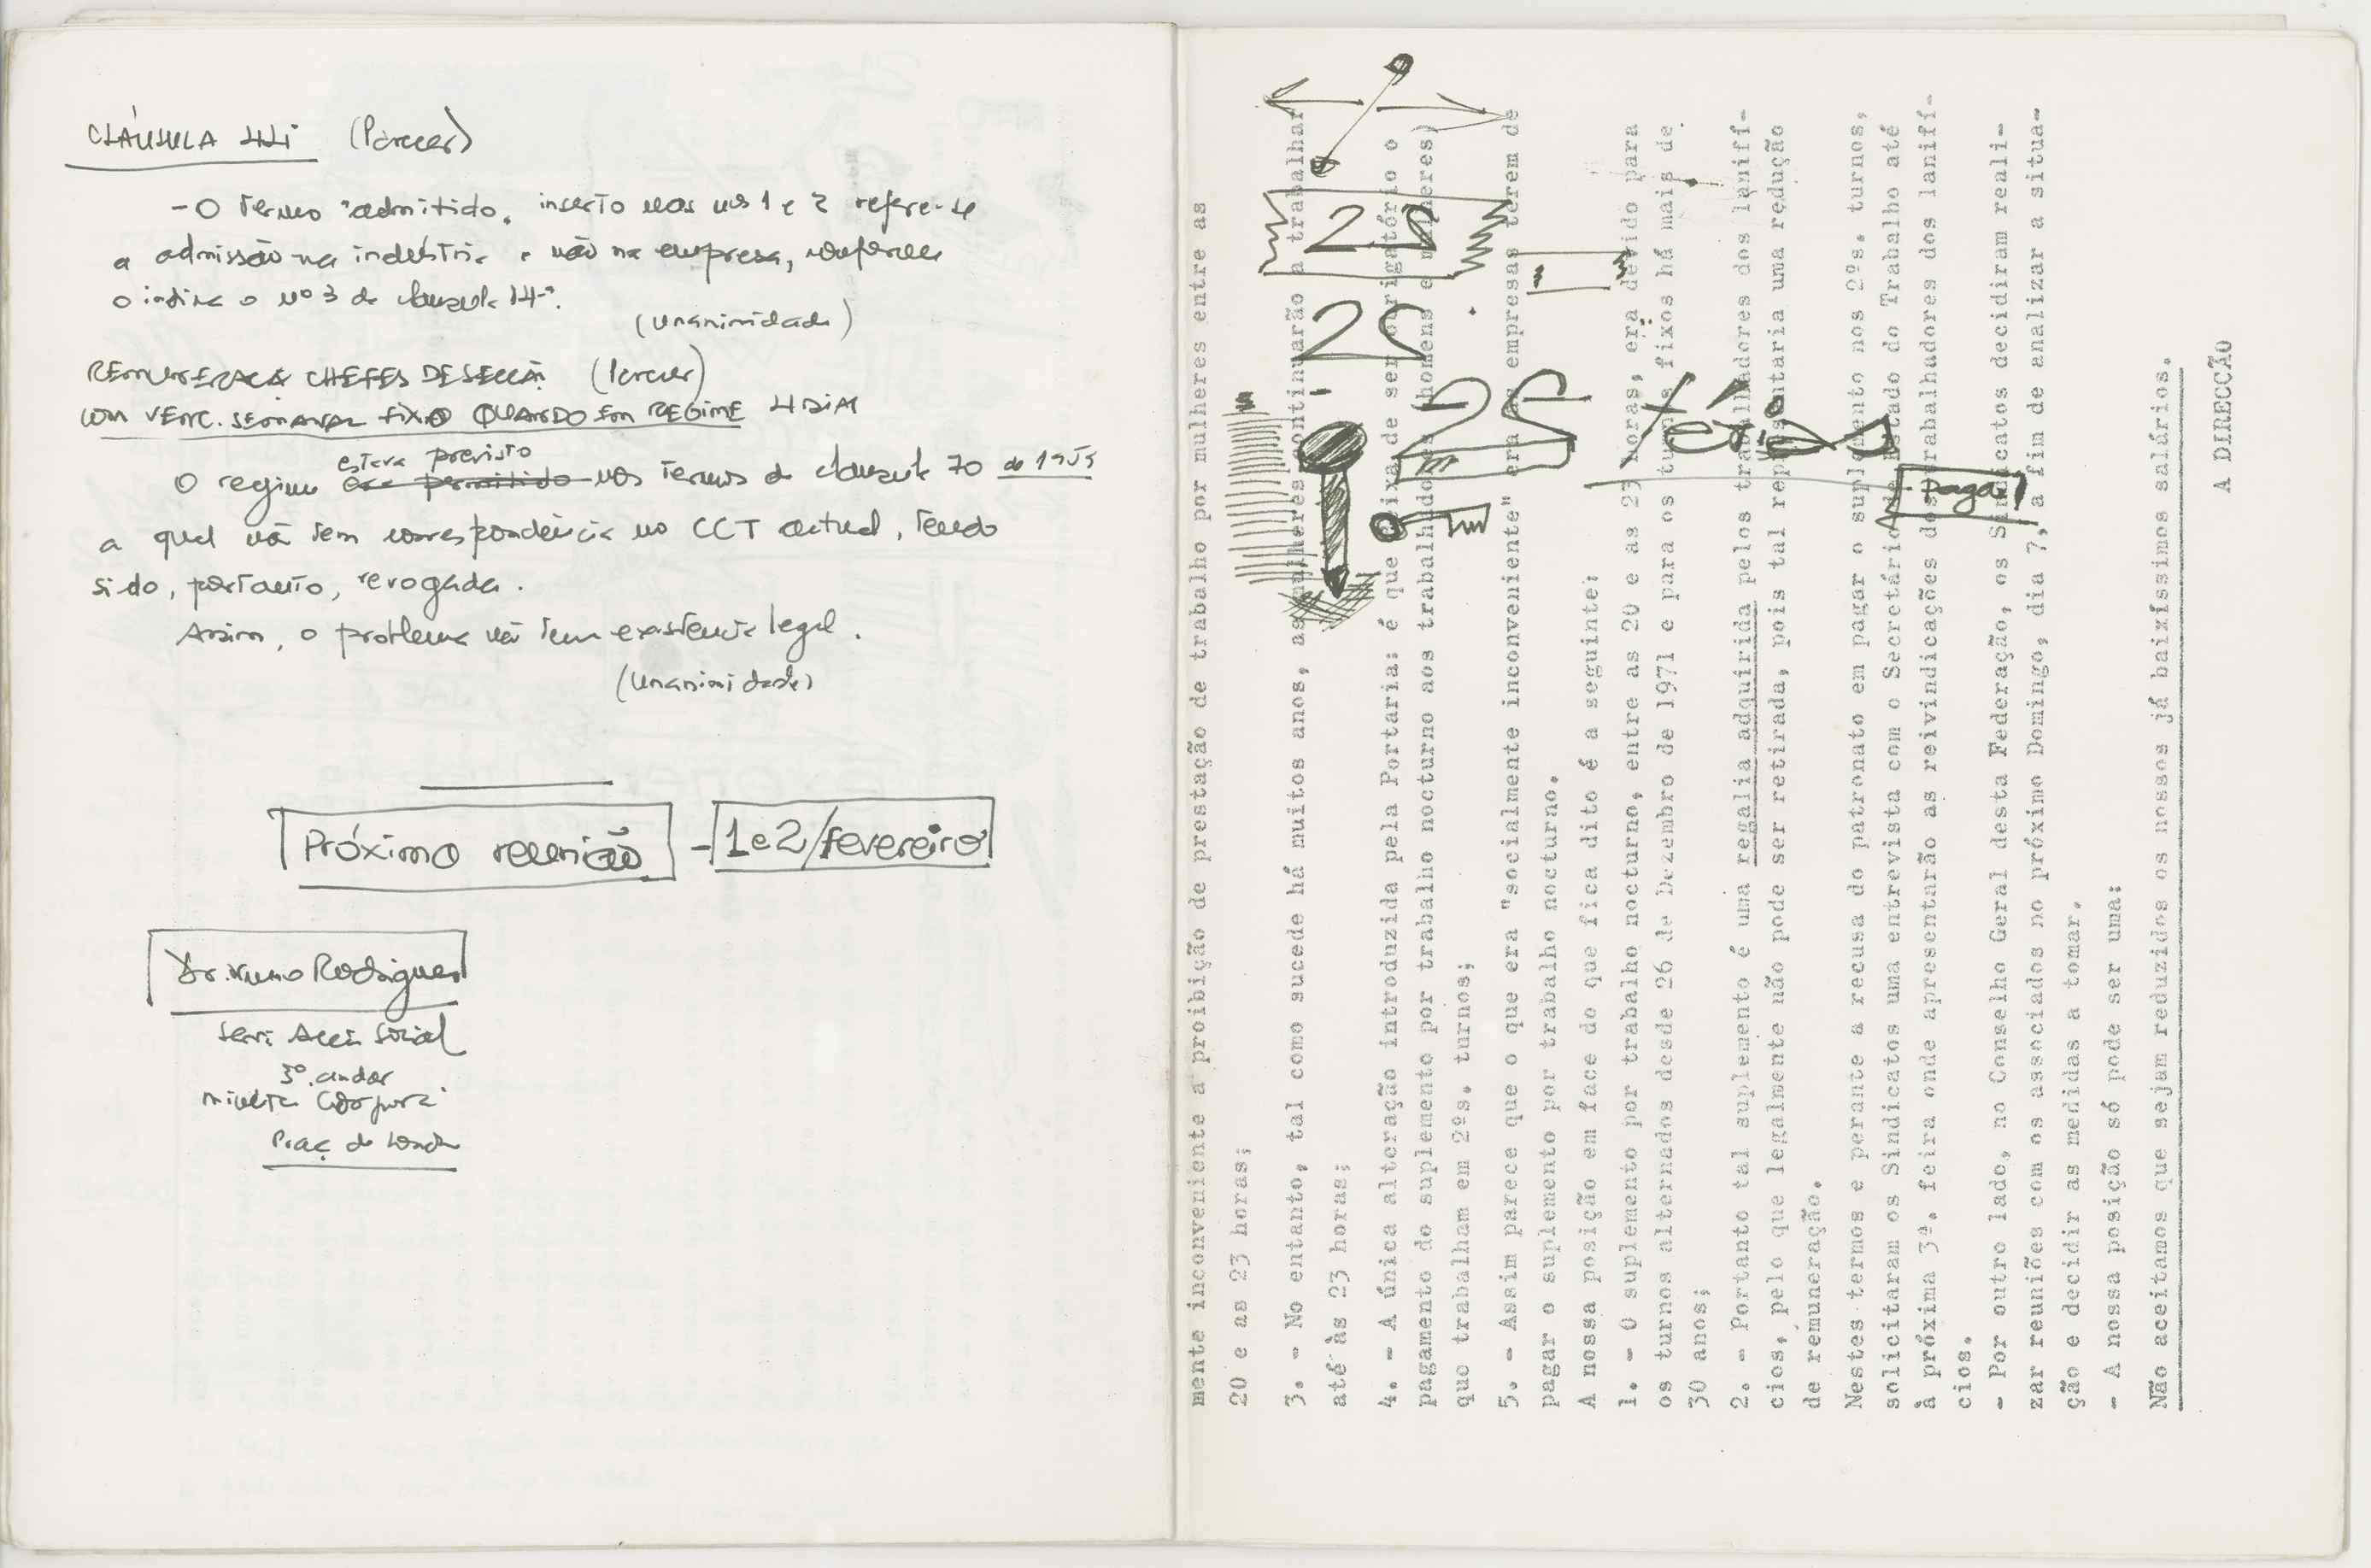 CLÁUSULA 44ª (Parecer)
- O termo "admitido" inserto nos nºs 1 e 2 refere-se
a admissão na indústria e não na empresa, conforme
o indica o nº 3 da clausula 14ª.
(Unanimidade)
REMUNERAÇÃ CHEFES DE SECÇÃ (Parecer)
COM VENC. SEMANAL FIXO QUANDO EM REGIME 4 DIAS
estava previsto
O regime era permitido nos termos da clausula 70 de
a qual nã tem correspondência no CCT actual, tendo
sido, portanto, revogada.
Assim, o problema nã tem existência legal.
(Unanimidade)
Próximo reunião - 1 e 2/fevereiro
Dr. Nuno Rodrigues
Social
3º. andar
Praç de
mente inconveniente a proibição de prestação de trabalho por mulheres entre as
20 e as 23 horas;
3. - No entanto, tal como sucede há muitos anos, as mulheres continuarão a trabalhar
até às 23 horas;
4. - A única alteração introduzida pela Portaria: é que deixa de ser obrigatório o
pagamento do suplemento por trabalho nocturno aos trabalhadores (homens e mulheres)
que trabalham em 2ºs. turnos;
5. - Assim parece que o que era "socialmente inconveniente" era as empresas terem de
pagar o suplemento por trabalho nocturno.
A nossa posição em face do que fica dito é a seguinte:
1. - O suplemento por trabalho nocturno, entre as 20 e as 23 horas, era devido para
os turnos alternados desde 26 de Dezembro de 1971 e para os turnos fixos há mais de
30 anos;
2. - Portanto tal suplemento é uma regalia adquirida pelos trabalhadores dos lanifí-
cios, pelo que legalmente não pode ser retirada, pois tal representaria uma redução
de remuneração.
Nestes termos e perante a recusa do patronato em pagar o suplemento nos 2ºs. turnos,
solicitaram os Sindicatos uma entrevista com o Secretário de Estado do Trabalho até
à próxima 3ª. feira onde apresentarão as reivindicações dos trabalhadores dos lanifí-
cios.
- Por outro lado, no Conselho Geral desta Federação, os Sindicatos decidiram reali-
zar reuniões com os associados no próximo Domingo, dia 7, a fim de analizar a situa-
ção e decidir as medidas a tomar.
- A nossa posição só pode ser uma:
Não aceitamos que sejam reduzidos os nossos já baixíssimos salários.
A DIRECÇÃO
25 férias